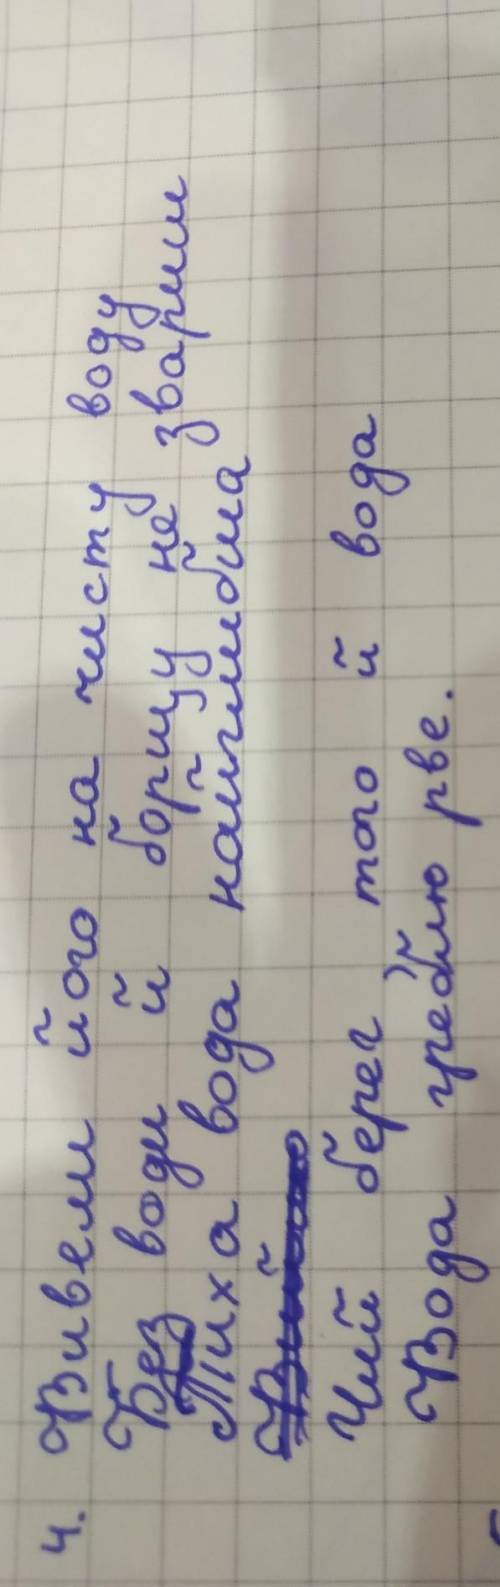 4. Вивели його на чисту воду
Без води й борщу не звариш
Тиха вода найглибша
Чий берег того й вода
Вода греблю рве.